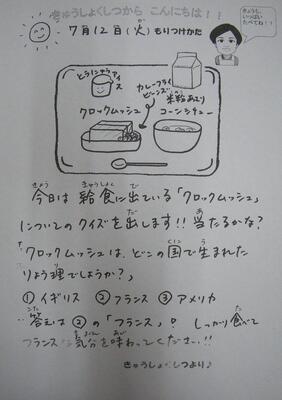 きゅうしょくしつから こんにちは!!
きょうも、
いっぱい
たべてね!!
7月12日(火)もりつけかた
とうにゅうアイス
カレーフライ
ビーンズ
米粉あり
クロックムッシュ
コーンシチュー
今日は給食に出ている「クロックムッシュ」
についてのクイズを出します!!当たるかな?
「クロックムッシュは、どこの国で生まれた
りょう理でしょうか?」
①イギリス ②フランス ③アメリカ
答えは②の「フランス」。しっかり食べて
フランスな気分を味わってください!!
きゅうしょくしつより♪